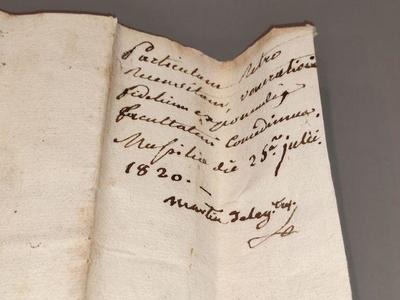 Particulam retro
recensitam, venerationi
fidelium exponendi
facultatem concedimus.
Massiliae die 25ª julii
1820. —
martin